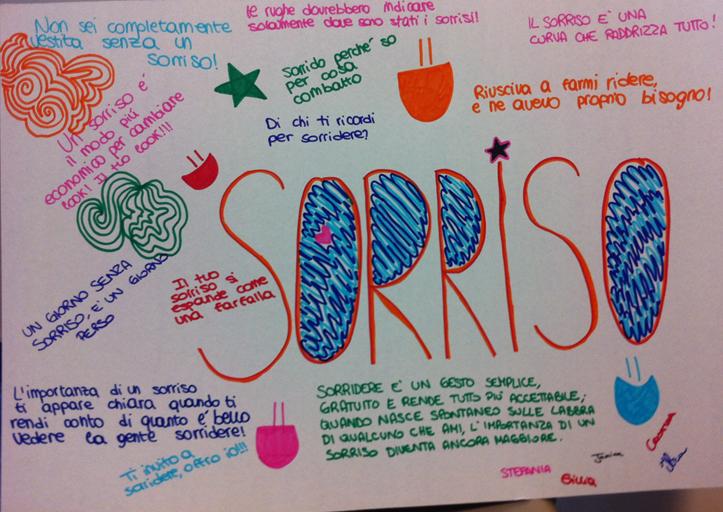 Non sei completamente
vestita senza un
sorriso!
le rughe dovrebbero indicare
solamente dove sono stati i sorrisi!!
IL SORRISO E' UNA
CURVA CHE RADDRIZZA TUTTO!
Sorrido perchè so
per cosa
combatto
Riusciva a farmi ridere,
e ne avevo proprio bisogno!
Un sorriso é
il modo più
economico per cambiare
look! Il tuo look!!!
Di chi ti ricordi
per sorridere?
SORRISO
UN GIORNO SENZA
SORRISO, E' UN GIORNO
PERSO
Il tuo
sorriso si
espande come
una farfalla
L'importanza di un sorriso
ti appare chiara quando ti
rendi conto di quanto é bello
vedere la gente sorridere!
SORRIDERE E' UN GESTO SEMPLICE,
GRATUITO E RENDE TUTTO PIU' ACCETTABILE;
QUANDO NASCE SPONTANEO SULLE LABBRA
DI QUALCUNO CHE AMI, L'IMPORTANZA DI UN
SORRISO DIVENTA ANCORA MAGGIORE.
Ti invito a
sorridere, offro io!!!
STEFANIA
Giulia